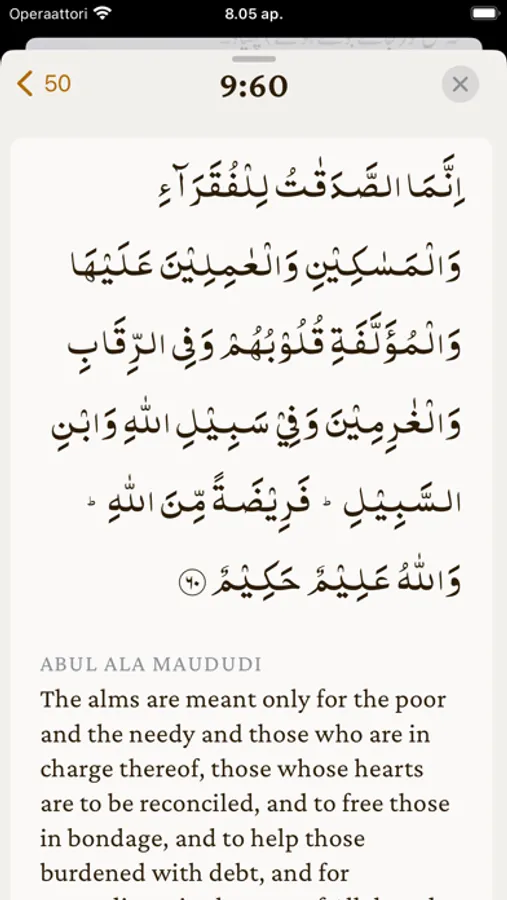 Operaattori 8.05 ap.
50 9:60
اِنَّمَا الصَّدَقٰتُ لِلْفُقَرَآءِ
وَالْمَسٰكِيْنِ وَالْعٰمِلِيْنَ عَلَيْهَا
وَالْمُؤَلَّفَةِ قُلُوْبُهُمْ وَفِى الرِّقَابِ
وَالْغٰرِمِيْنَ وَفِىْ سَبِيْلِ اللّٰهِ وَابْنِ
السَّبِيْلِ ؕ فَرِيْضَةً مِّنَ اللّٰهِ ؕ
وَاللّٰهُ عَلِيْمٌ حَكِيْمٌ ۶۰
ABUL ALA MAUDUDI
The alms are meant only for the poor
and the needy and those who are in
charge thereof, those whose hearts
are to be reconciled, and to free those
in bondage, and to help those
burdened with debt, and for